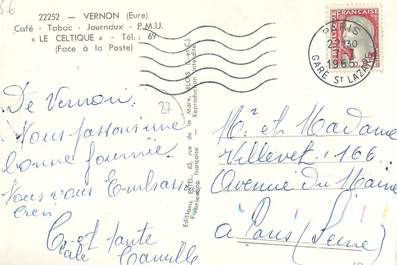 22252 - VERNON (Eure)
Café - Tabac - Journaux - P.M.U.
« LE CELTIQUE » - Tél.: 69
(Face à la Poste)
De Vernon
Nous passons une
bonne journée
Nous vous Embrassons
bien
Camille
27
Editions 63, rue de la Mare, PARIS
Reproduction interdite
Fabrication française
PARIS
1965
GARE ST LAZARE
FRANÇAISE
Mr et Madame
Villevet 166
Avenue du Maine
à Paris (Seine)